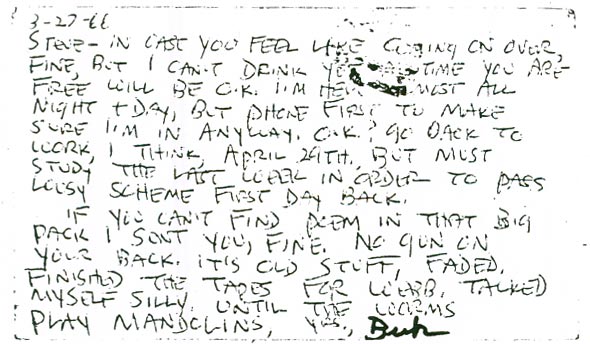 3-27-66
STEVE- IN CASE YOU FEEL LIKE COMING ON OVER,
FINE, BUT I CAN'T DRINK TIME YOU ARE
FREE WILL BE O.K. I'M ALL
NIGHT + DAY, BUT PHONE FIRST TO MAKE
SURE I'M IN ANYWAY. O.K.? GO BACK TO
WORK, I THINK, APRIL 29TH, BUT MUST
STUDY THE LAST WEEK IN ORDER TO PASS
LOUSY SCHEME FIRST DAY BACK.
IF YOU CAN'T FIND POEM IN THAT BIG
PACK I SENT YOU, FINE. NO GUN ON
YOUR BACK. IT'S OLD STUFF, FADED.
FINISHED THE TAPES FOR WEBB, TALKED
MYSELF SILLY. UNTIL THE WORMS
PLAY MANDOLINS, YES, Buk